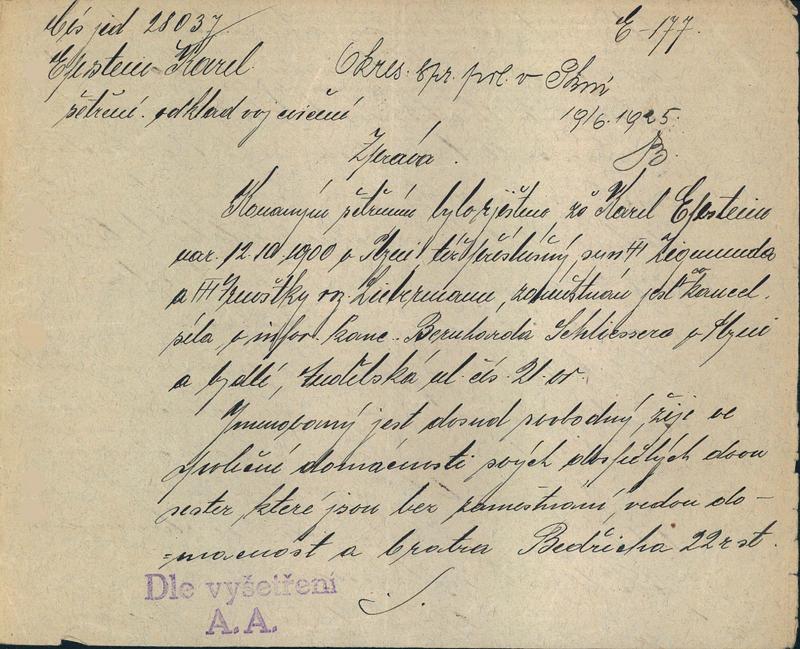 Čís jed 28037
E-177.
Epstein Karel
Okres. spr. pol. v Plzni
šetření. odklad voj cvičení
19/6.1925.
Zpráva.
Konaným šetřením bylo zjištěno, že Karel Epstein
nar. 12.10.1900 v Plzni též příslušný, syn III Zigmunda
a III Anežky roz. Liebermann, zaměstnán jest co kancel.
síla v infor. kanc. Bernharda Schliessera v Plzni
a bydlí, ul. čís. 21. or.
Jmenovaný jest dosud svobodný, žije ve
společné domácnosti svých dospělých dvou
sester které jsou bez zaměstnání, vedou do-
=macnost a bratra Bedřicha 22 r st.
Dle vyšetření
A.A.